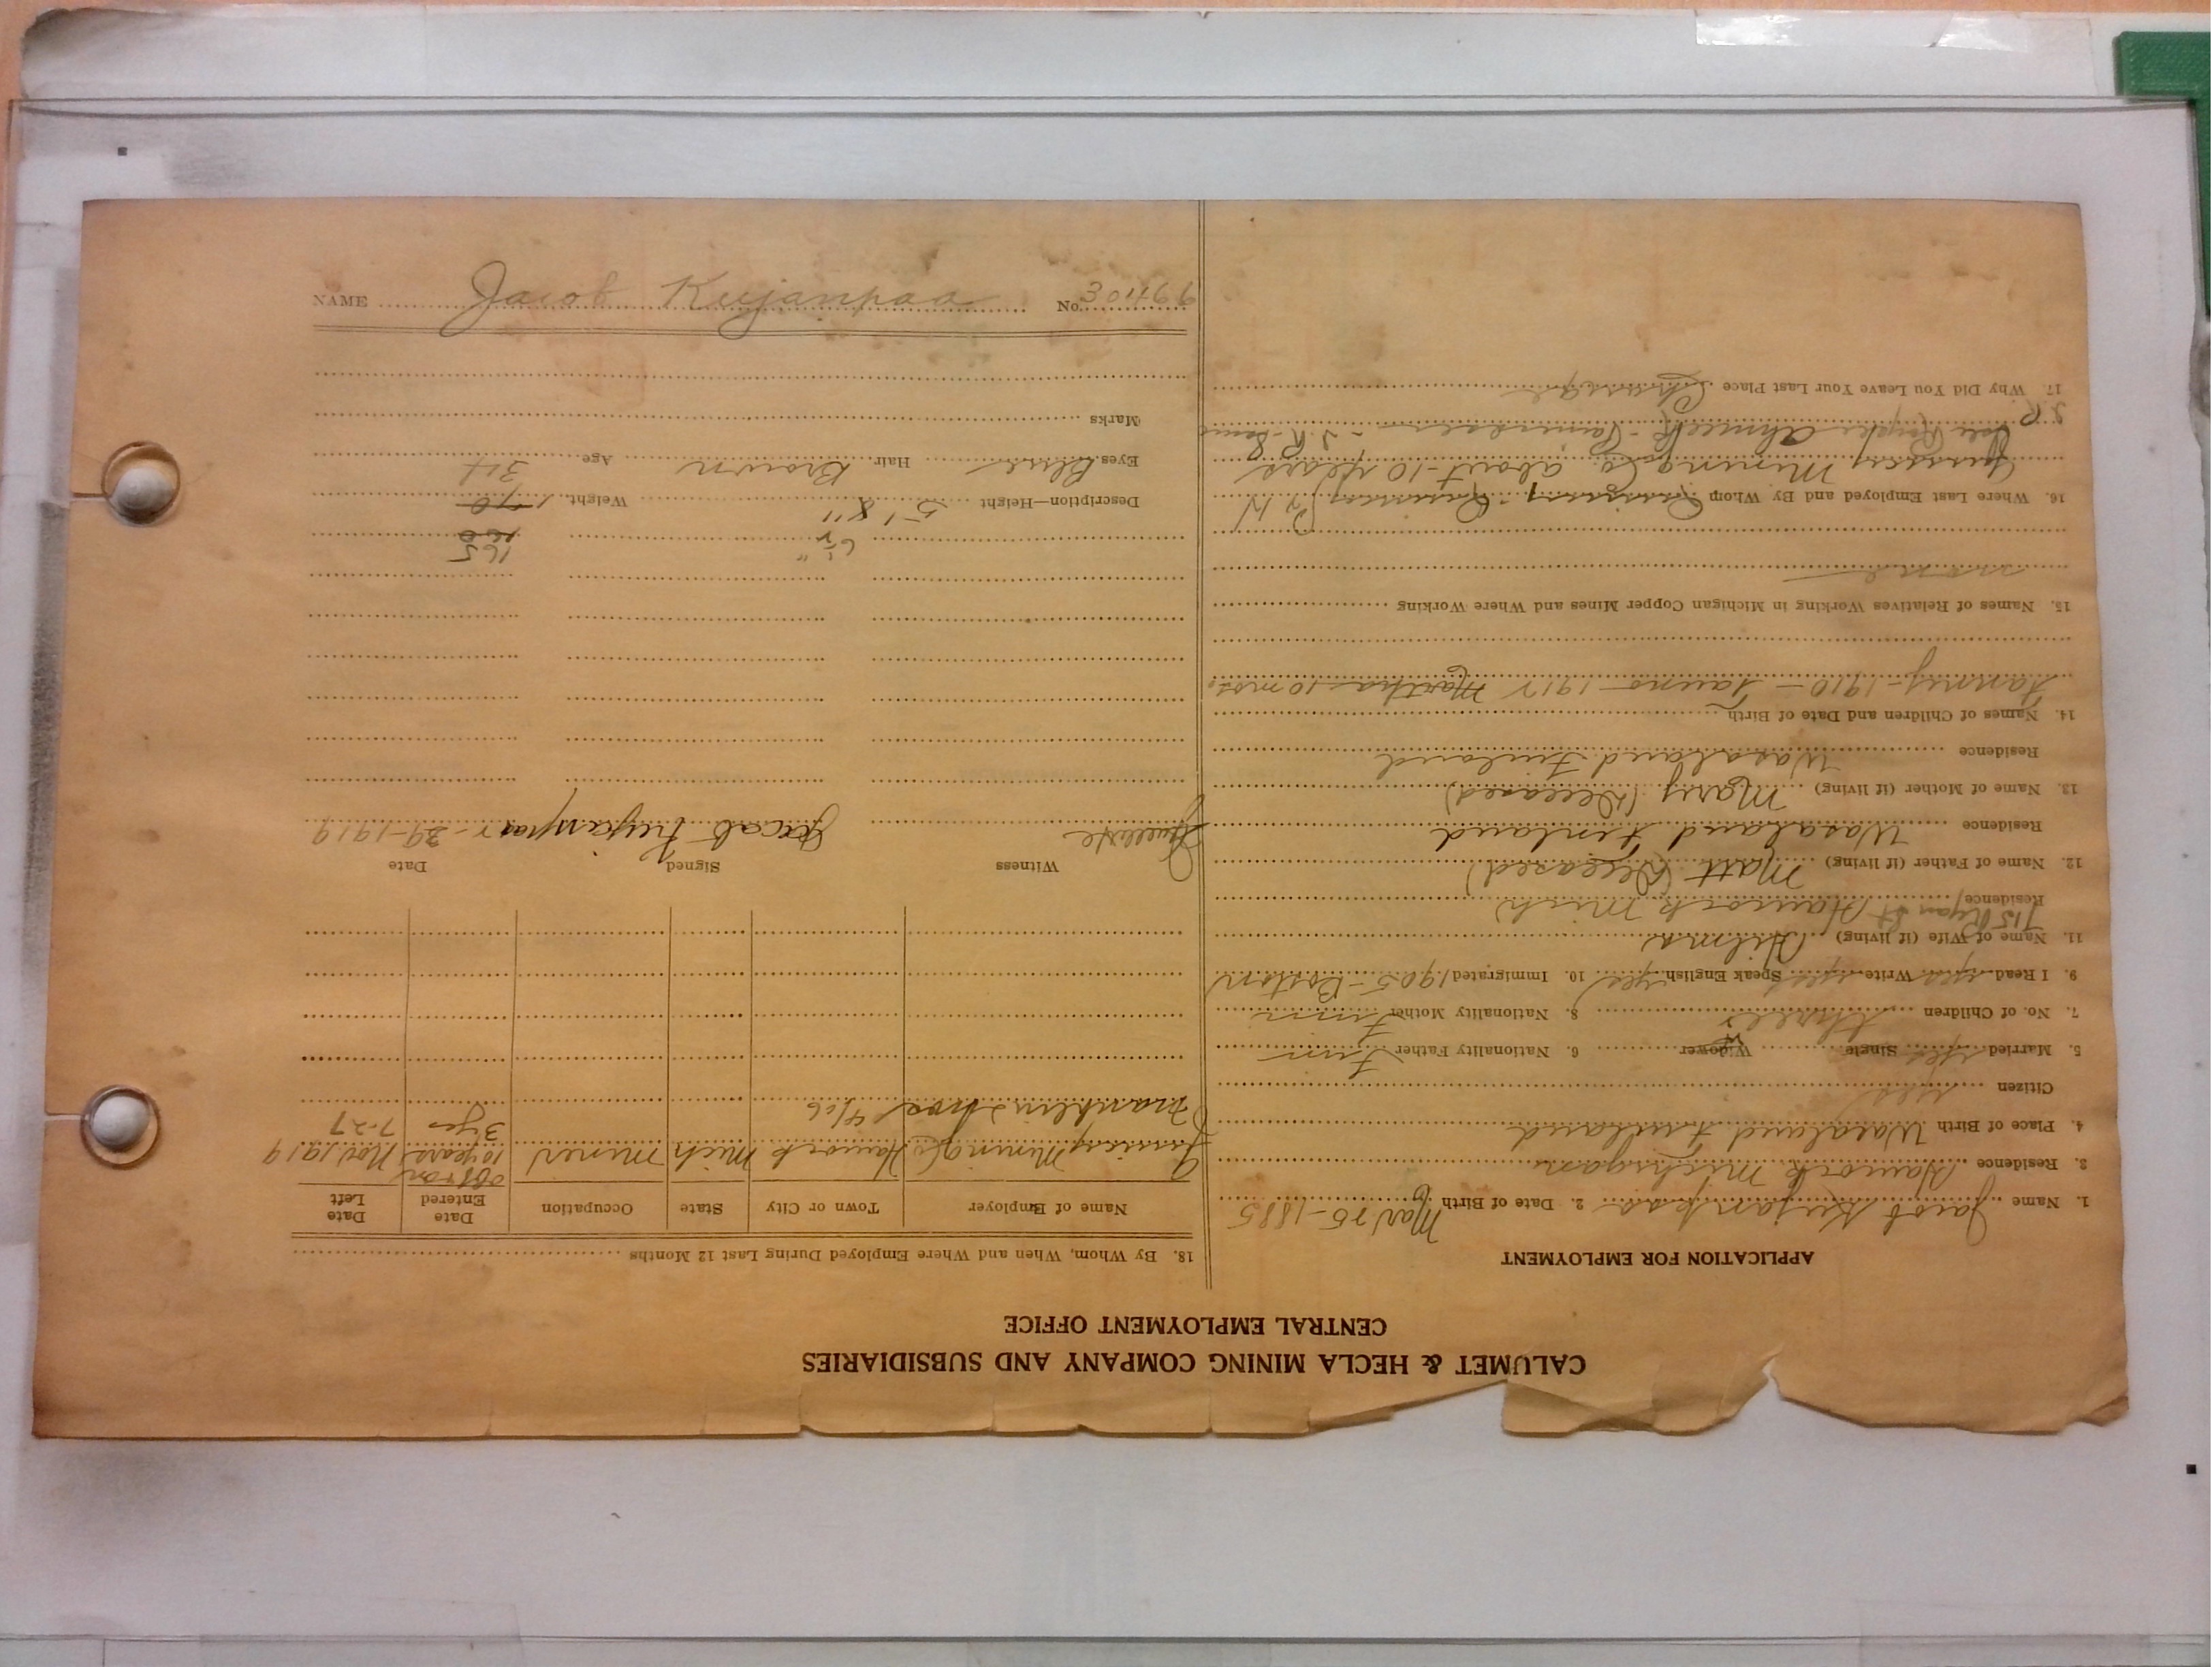 CALUMET & HECLA MINING COMPANY AND SUBSIDIARIES
CENTRAL EMPLOYMENT OFFICE
APPLICATION FOR EMPLOYMENT
1. Name Jacob Kujanpaa 2. Date of Birth Mar 25-1885
3. Residence Hancock Michigan
4. Place of Birth Wasaland Finland
Citizen yes
5. Married yes Single Widower 6. Nationality Father Finn
7. No. of Children three 8. Nationality Mother Finn
9. I Read yes Write yes Speak English yes 10. Immigrated 1905-Boston
11. Name of Wife (if living) Hilma
715 Ryan St
Residence Hancock Mich
12. Name of Father (if living) Matt (Deceased)
Residence Wasaland Finland
13. Name of Mother (if living) Mary (Deceased)
Residence Wasaland Finland
14. Names of Children and Date of Birth
Fanney-1910-Tauno-1917 Martha 10 mos.
15. Names of Relatives Working in Michigan Copper Mines and Where Working
none
16. Where Last Employed and By Whom Quincy
Quincy Mining Co. about 10 years
Ahmeek
17. Why Did You Leave Your Last Place Change
18. By Whom, When and Where Employed During Last 12 Months
Name of Employer Town or City State Occupation Date Entered Date Left
Quincy Mining Co Hancock Mich Miner 10 years Nov 1919
Franklin 4/26 3 yrs 7-27
Witness Signed Date
Jacob Kujanpaa 29-1919
6½" 165
160
Description—Height 5' 8" Weight 170
Eyes Blue Hair Brown Age 34
Marks
NAME Jacob Kujanpaa No. 30469